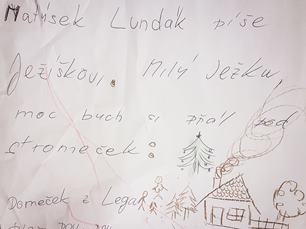 Matýsek Lundák píše
Ježíškovi. Milý Ježku,
moc bych si přál pod
stromeček:
Domeček z Lega